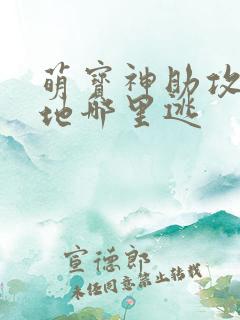 萌宝神助攻
地哪里逃
宣德郎
未经同意禁止转载